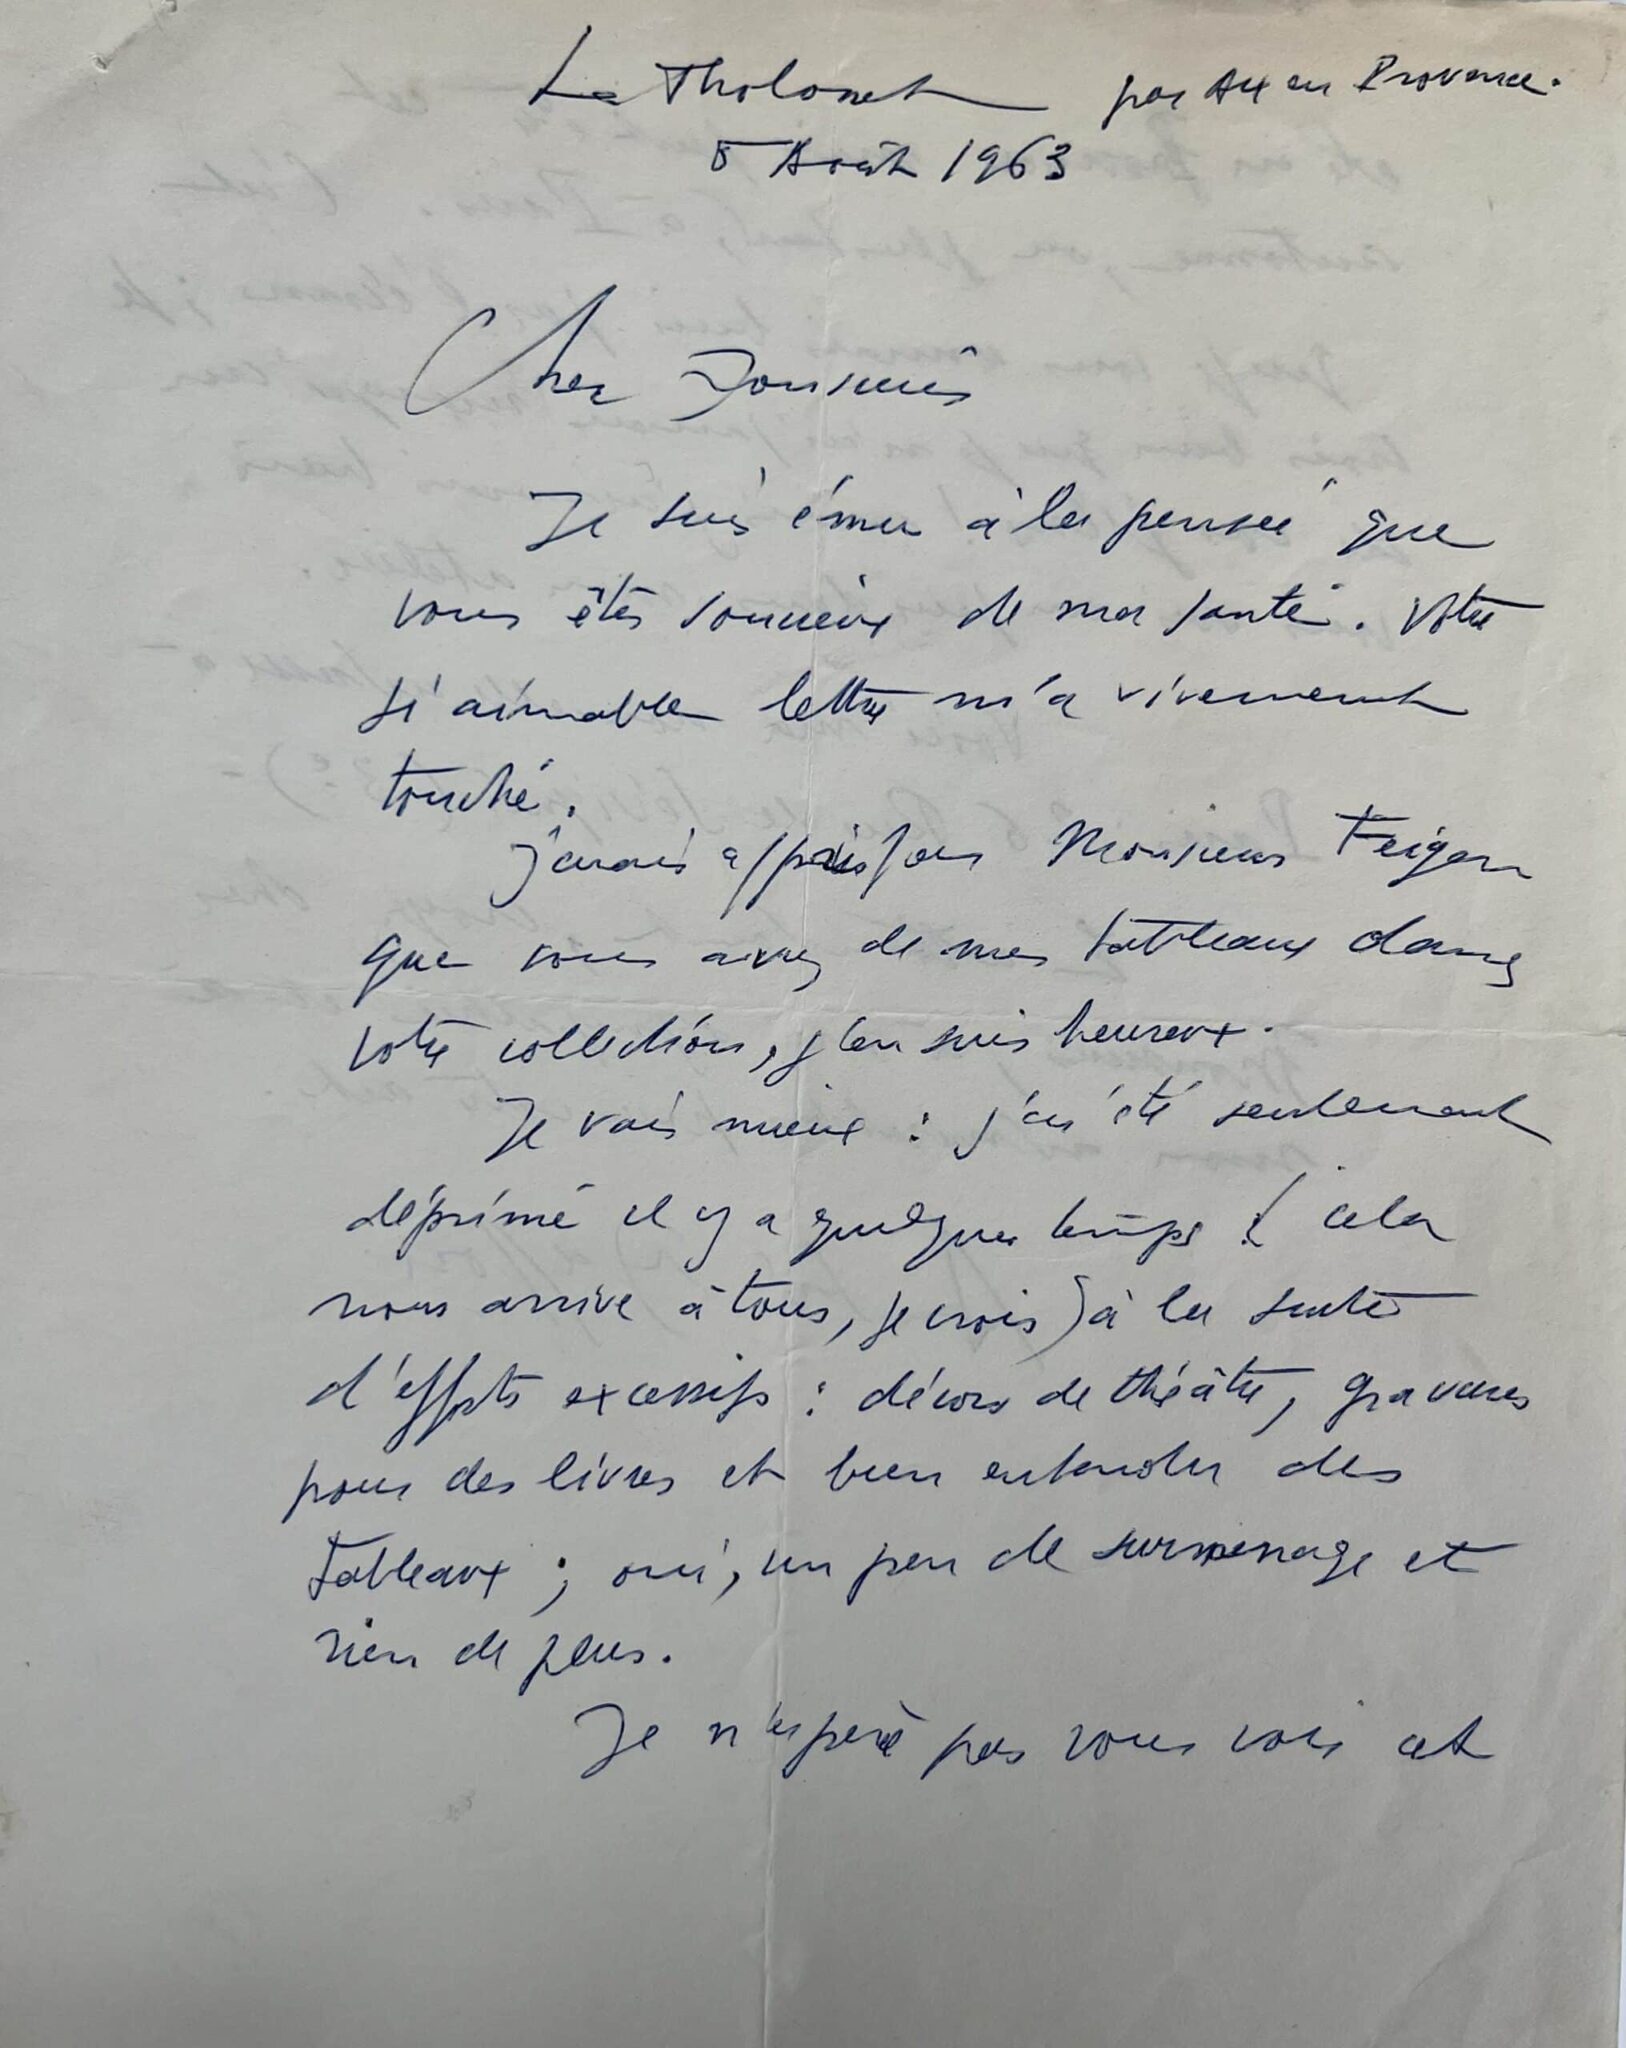 Le Tholonet par Aix en Provence.
8 Août 1963
Cher Monsieur
Je suis ému à la pensée que
vous êtes soucieux de ma santé. Votre
si aimable lettre m'a vivement
touché.
J'avais appris par Monsieur Feigen
que vous avez de mes tableaux dans
votre collection, j'en suis heureux.
Je vais mieux : j'ai été seulement
déprimé il y a quelque temps ( cela
nous arrive à tous, je crois) à la suite
d'efforts excessifs : décors de théâtre, gravures
pour des livres et bien entendu des
tableaux ; oui, un peu de surmenage et
rien de plus.
Je n'espère pas vous voir cet